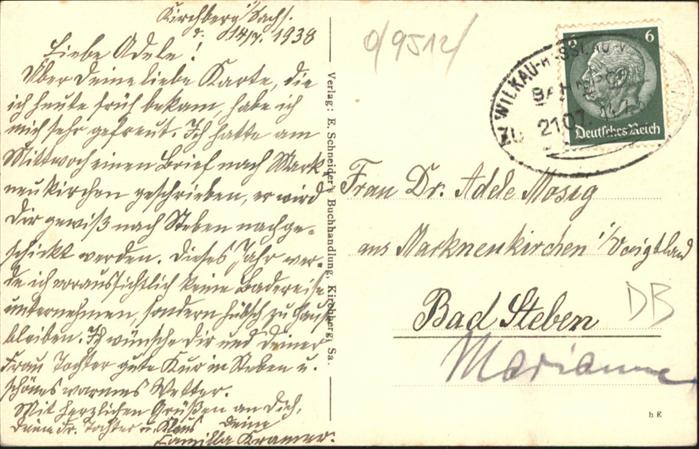 Kirchberg i/Sachs.
d. 14/7. 1938
Liebe Adele!
Über Deine liebe Karte, die
ich heute früh bekam, habe ich
mich sehr gefreut. Ich hatte am
Mittwoch einen Brief nach Mark-
neukirchen geschrieben, er wird
Dir gewiß nach Steben nachge-
schickt werden. Dieses Jahr wer-
de ich voraussichtlich keine Badereise
unternehmen, sondern hübsch zu Hause
bleiben. Ich wünsche Dir und Deiner
Frau Tochter gute Kur in Steben u.
schönes warmes Wetter.
Mit herzlichen Grüßen an Dich,
Deine Fr. Tochter u. Klaus
Deine
Camilla Kramer.
Verlag: E. Schneider's Buchhandlung, Kirchberg, Sa.
6
Deutsches Reich
WILKAU-
2107
Frau Dr. Adele Mosig
aus Markneukirchen i/Voigtland
Bad Steben
DB
Marianne
h E